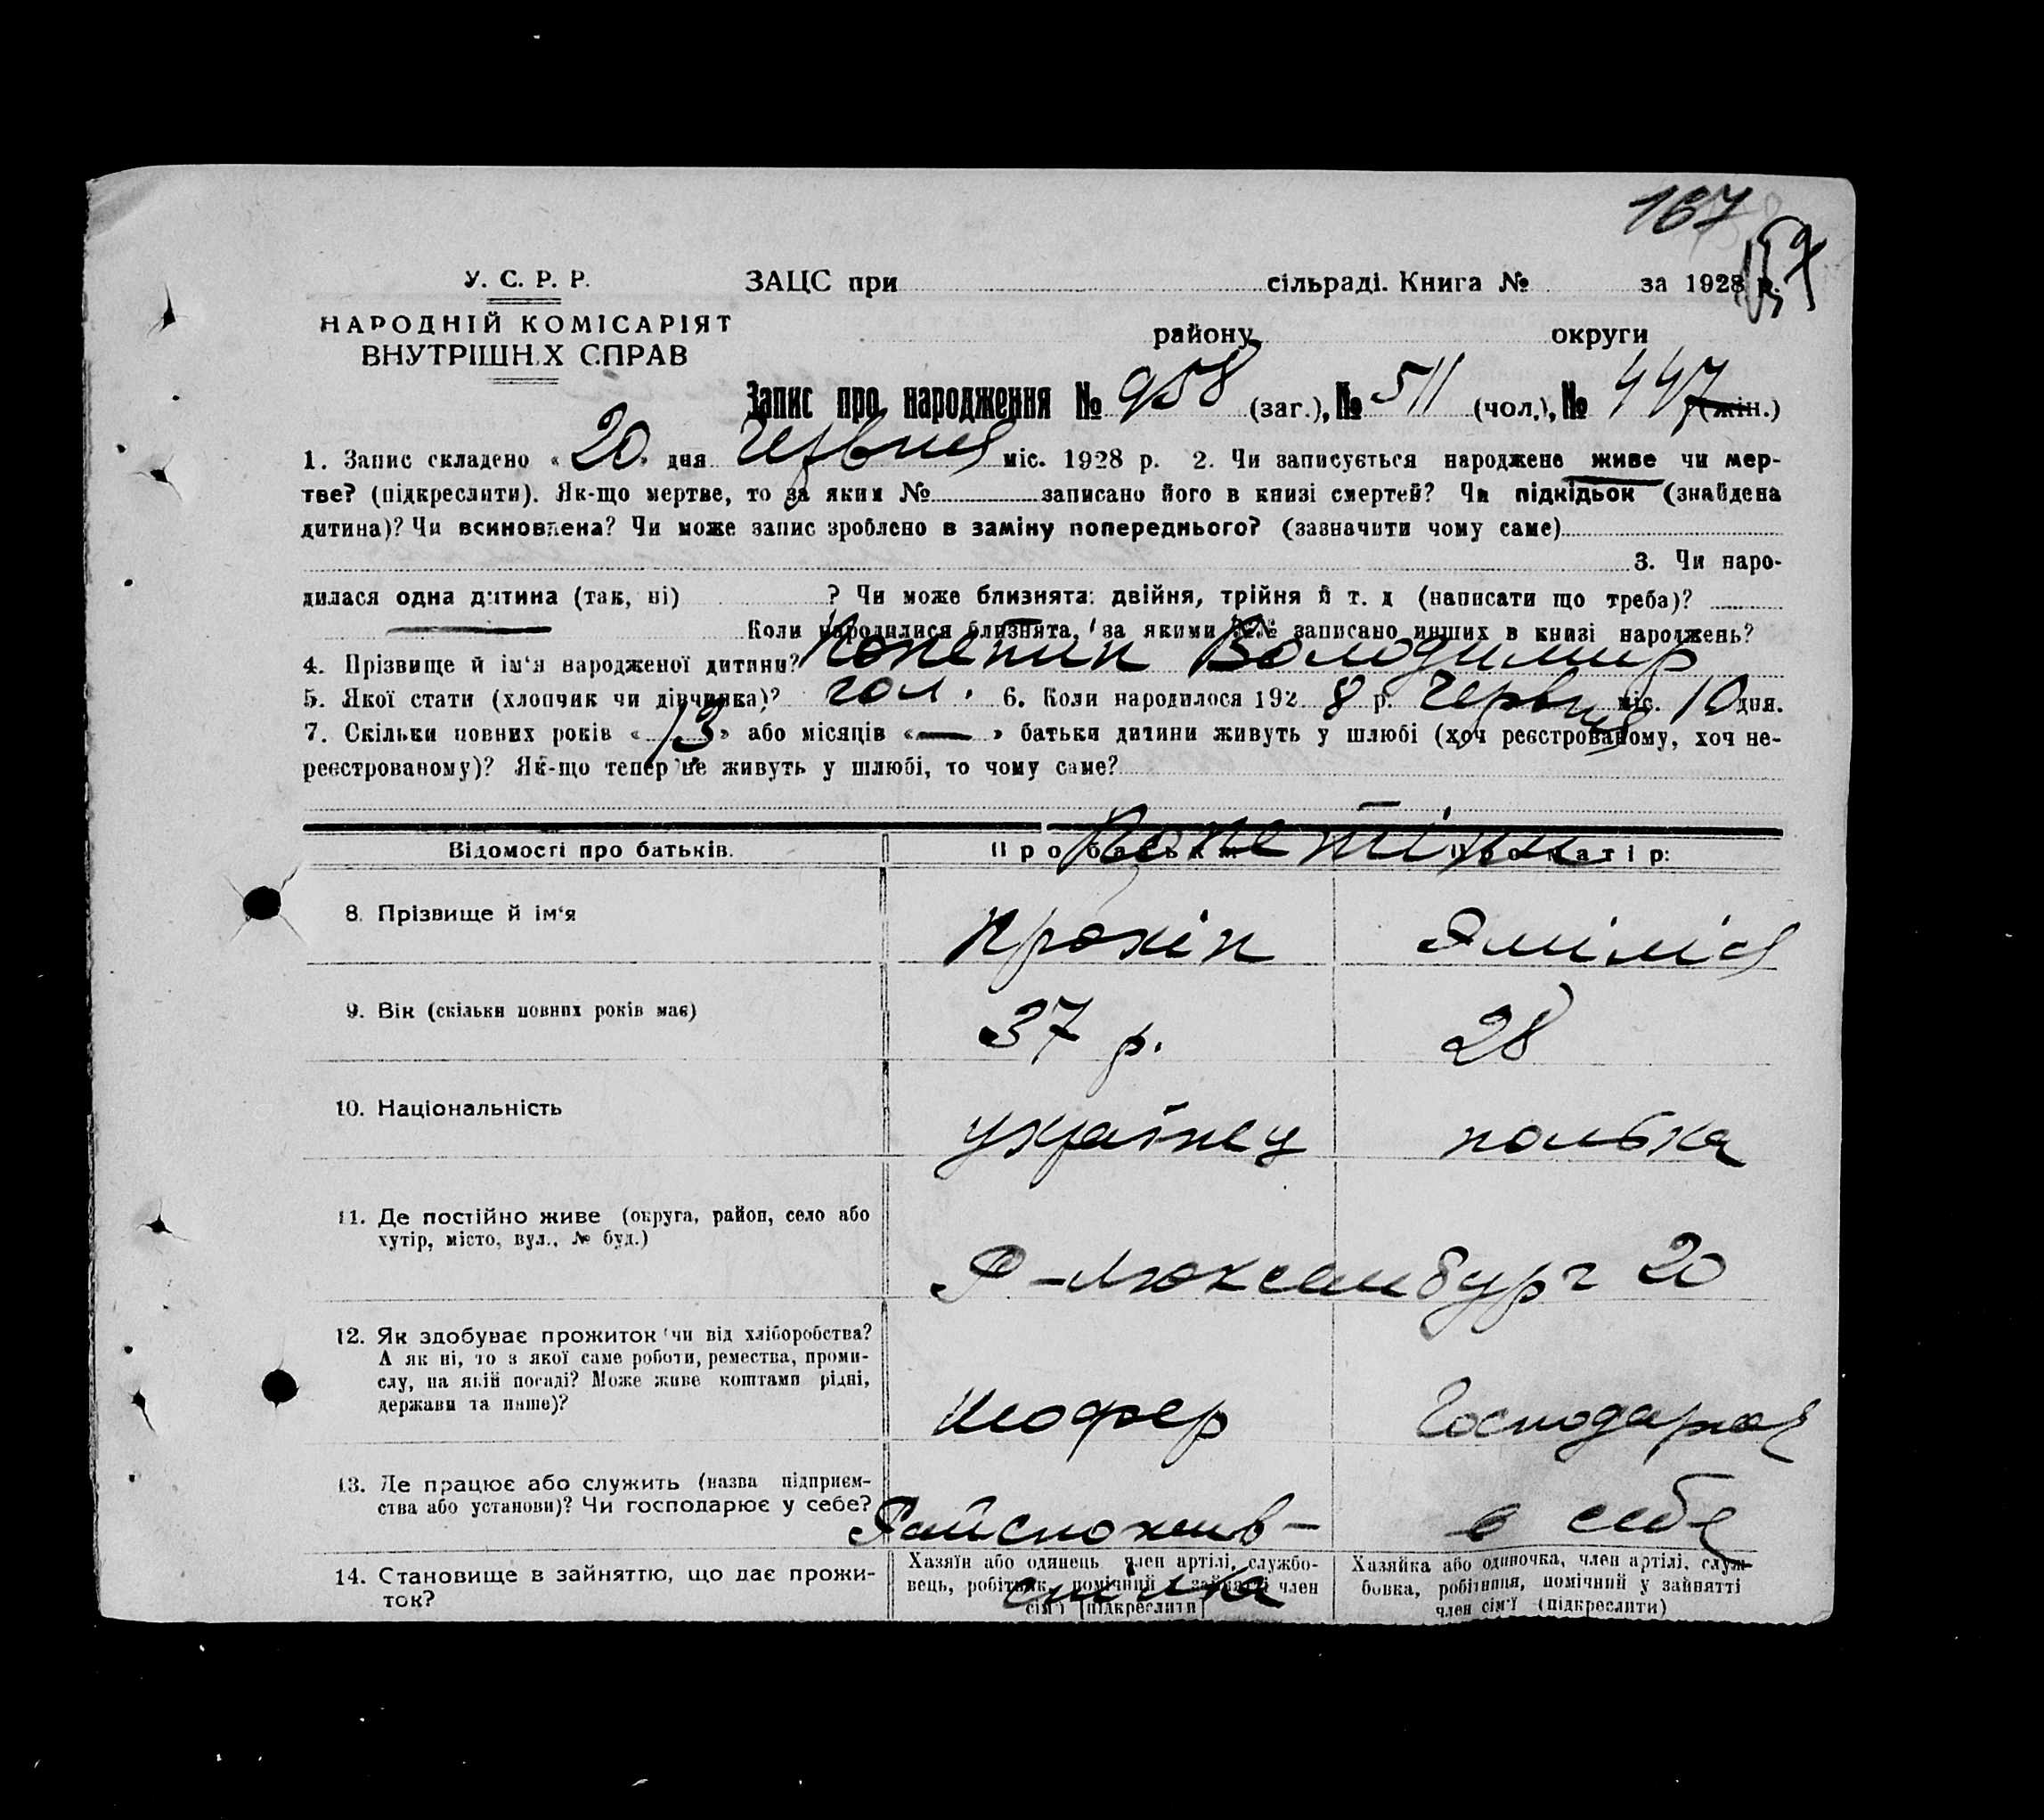 167
157
У. С. Р. Р.
НАРОДНІЙ КОМІСАРІЯТ
ВНУТРІШНІХ СПРАВ
ЗАЦС при сільраді. Книга № за 1928 р.
району округи
Запис про народження № 958 (заг.), № 511 (чол.), № 447 (жін.)
1. Запис складено « 20 » дня червня міс. 1928 р. 2. Чи записується народжене живе чи мер-
тве? (підкреслити). Як-що мертве, то за яким № записано його в книзі смертей? Чи підкідьок (знайдена
дитина)? Чи всиновлена? Чи може запис зроблено в заміну попереднього? (зазначити чому саме)
3. Чи наро-
дилася одна дитина (так, ні) ? Чи може близнята: двійня, трійня й т. д (написати що треба)?
Коли народилися близнята, за якими №№ записано инших в книзі народжень?
4. Прізвище й ім‘я народженої дитини? Копетин Володимир
5. Якої стати (хлопчик чи дівчинка)? чол. 6. Коли народилося 192 8 р. червня міс. 10 дня.
7. Скільки повних років « 13 » або місяців « — » батьки дитини живуть у шлюбі (хоч реєстрованому, хоч не-
реєстрованому)? Як-що тепер не живуть у шлюбі, то чому саме?
Відомості про батьків. Про батька: Про матір:
Копетіни
8. Прізвище й ім‘я Прокіп Ямілія
9. Вік (скільки повних років має) 37 р. 28
10. Національність українець полька
11. Де постійно живе (округа, район, село або
хутір, місто, вул., № буд.)
Р-Люксембург 20
12. Як здобуває прожиток чи від хліборобства?
А як ні, то з якої саме роботи, ремества, проми-
слу, на якій посаді? Може живе коштами рідні,
держави та инше)?
Шофер Господарює
13. Де працює або служить (назва підприєм-
ства або установи)? Чи господарює у себе?
Райспожив- в себе
спілка
14. Становище в зайняттю, що дає прожи-
ток?
Хазяїн або одинець член артілі, службо-
вець, робітник, помічний у зайнятті член
сім'ї [підкреслити]
Хазяйка або одиночка, член артілі, служ-
бовка, робітниця, помічний у зайнятті
член сім'ї (підкреслити)